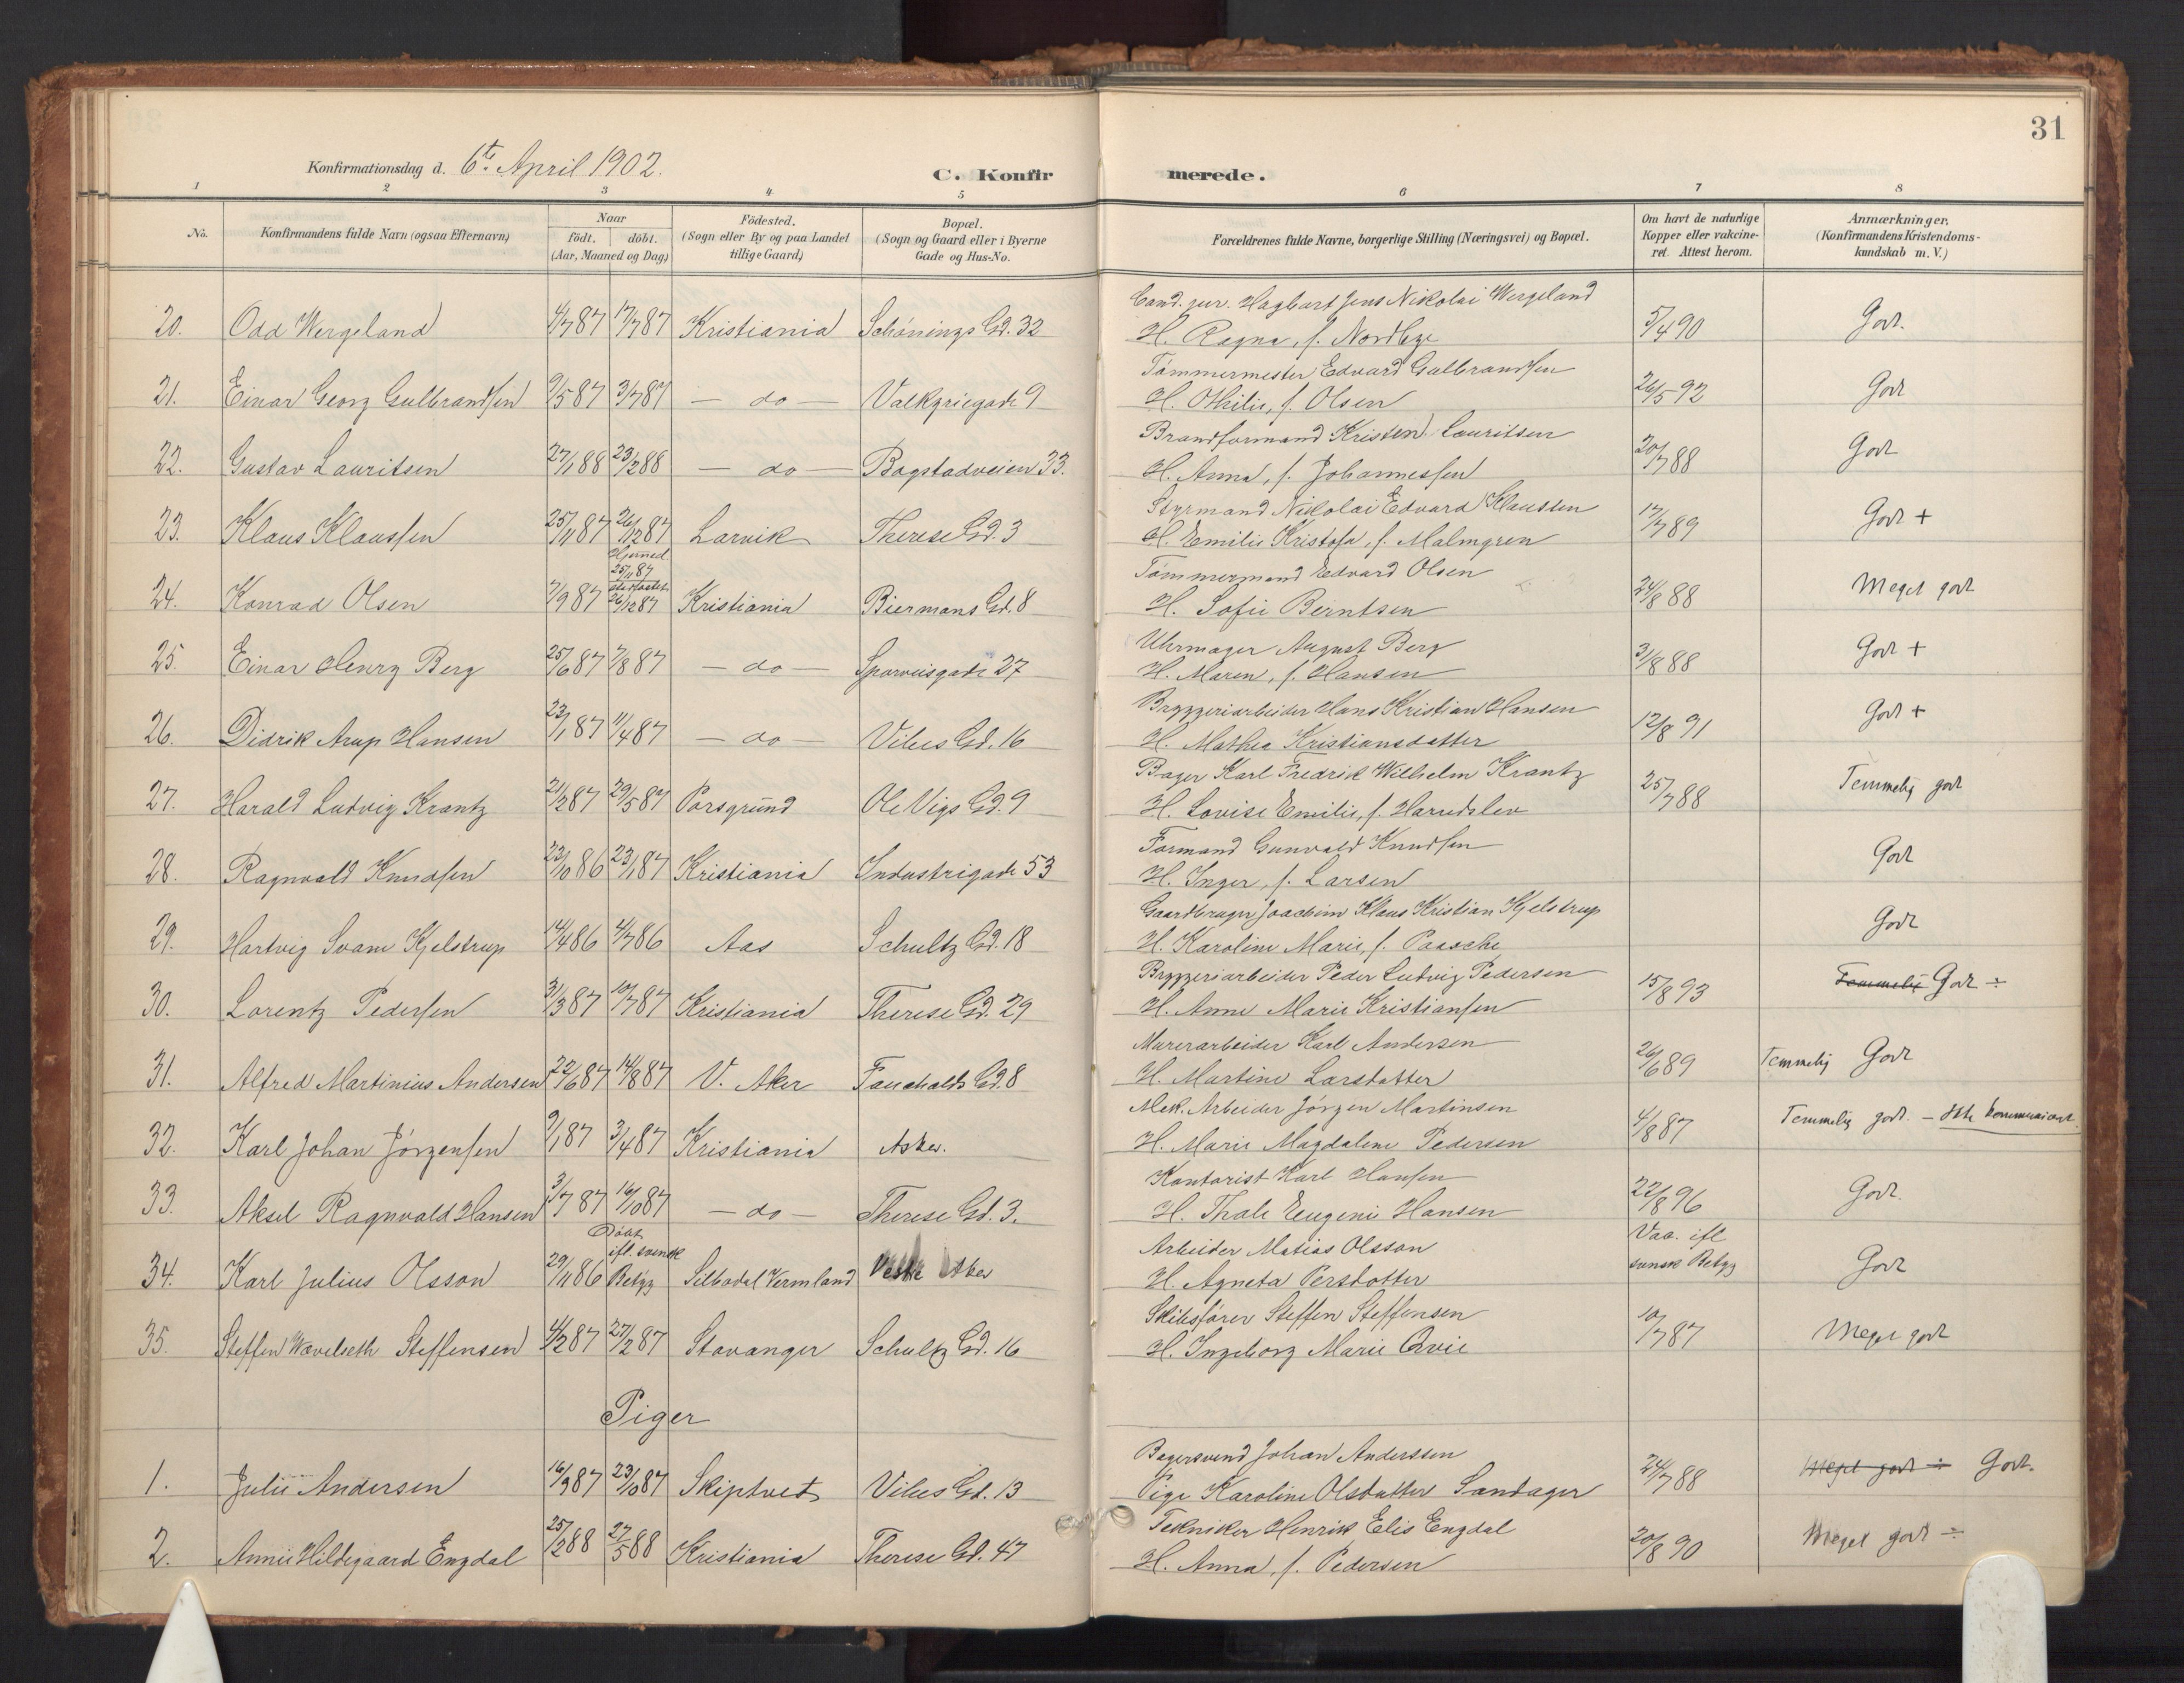 31
Konfirmationsdag d. 6te April 1902.
C. Konfirmerede.
1 2 3 4 5 6 7 8
No.
Konfirmandens fulde Navn (ogsaa Efternavn)
Naar
födt. döbt.
(Aar, Maaned og Dag)
Födested.
(Sogn eller By og paa Landet
tillige Gaard)
Bopæl.
(Sogn og Gaard eller i Byerne
Gade og Hus-No.
Forældrenes fulde Navne, borgerlige Stilling (Næringsvei) og Bopæl.
Om havt de naturlige
Kopper eller vakcine-
ret. Attest herom.
Anmærkninger.
(Konfirmandens Kristendoms-
kundskab m. V.)
Cand. jur. Hagbart Jens Nikolai Wergeland
20. Odd Wergeland 4/7 87 17/7 87 Kristiania Schönings Gd. 32 H. Ragna, f. 5/4 90 Godt.
Tömmermester Edvard Gulbrandsen
21. Einar Georg Gulbrandsen 9/5 87 3/7 87 — do — Valkyriegade 9 H. Othilie, f. Olsen 26/5 92 Godt
Brandformand Kristen Lauritsen
22. Gustav Lauritsen 27/1 88 23/2 88 — do — Bogstadveien 33. H. Anna, f. Johannessen 20/7 88 Godt
Styrmand Nikolai Edvard Klaussen
23. Klaus Klaussen 25/11 87 26/12 87 Larvik Therese Gd. 3 H. Emilie Kristofa, f. Malmgren 17/7 89 Godt +
Hjemmed.
25/11 87
stadfæstet
Tömmermand Edvard Olsen
24. Konrad Olsen 7/9 87 26/12 87 Kristiania Biermans Gd. 8 H. Sofie Berntsen 24/8 88 Meget godt
Uhrmager August Berg
25. Einar Henry Berg 25/6 87 7/8 87 — do — Sporveisgade 27 H. Maren, f. Hansen 31/8 88 Godt +
Bryggeriarbeider Hans Kristian Hansen
26. Didrik Arup Hansen 23/1 87 11/4 87 — do — Vibes Gd. 16 H. Mathea Kristiansdatter 12/8 91 Godt +
Bager Karl Fredrik Wilhelm Krantz
27. Harald Ludvig Krantz 21/2 87 29/5 87 Porsgrund Ole Vigs Gd. 9 H. Lovise Emilie, f. 25/7 88 Temmelig godt
Formand Gunvald Knudsen
28. Ragnvald Knudsen 23/10 86 23/1 87 Kristiania Industrigade 53 H. Inger, f. Larsen Godt
Gaardbruger Joachim Klaus Kristian Kjelstrup
29. Hartvig Svane Kjelstrup 14/4 86 4/7 86 Aas Schultz Gd. 18 H. Karoline Marie, f. Paasche Godt
Bryggeriarbeider Peder Ludvig Pedersen
30. Lorentz Pedersen 31/3 87 10/7 87 Kristiania Therese Gd. 29 H. Anne Marie Kristiansen 15/8 93 Temmelig Godt ÷
Murerarbeider Karl Andersen
31. Alfred Martinius Andersen 22/6 87 14/8 87 V. Aker Fauchalds Gd. 8 H. Martine Larsdatter 26/6 89 Temmelig Godt
Mek. Arbeider Jörgen Martinsen
32. Karl Johan Jörgensen 9/1 87 3/4 87 Kristiania Asker. H. Marie Magdalene Pedersen 4/8 87 Temmelig godt. — Ikke kommunicert
Kontorist Karl Hansen
33. Aksel Ragnvald Hansen 31/7 87 16/10 87 — do — Therese Gd. 3. H. Thale Eugenie Hansen 22/8 96 Godt.
Döbt
ifl. svensk
Arbeider Matias Olsson Vac. ifl
34. Karl Julius Olsson 29/11 86 Betyg Silbodal Vermland Vestre Aker H. Agneta Persdotter svensk Betyg Godt
Skibsförer Steffen Steffensen
35. Steffen Wævelseth Steffensen 4/2 87 27/2 87 Stavanger Schultz Gd. 16 H. Ingeborg Marie Qvie 10/7 87 Meget godt
Piger
Bagersvend Johan Anderssen
1. Julie Andersen 16/9 87 23/10 87 Skiptvet Vibes Gd. 13 Pige Karoline Olsdatter Sandager 24/7 88 Meget godt ÷ Godt.
Tekniker Henrik Elis Engdal
2. Annie Hildegaard Engdal 25/2 88 27/5 88 Kristiania Therese Gd. 47 H. Anna, f. Pedersen 20/8 90 Meget godt ÷